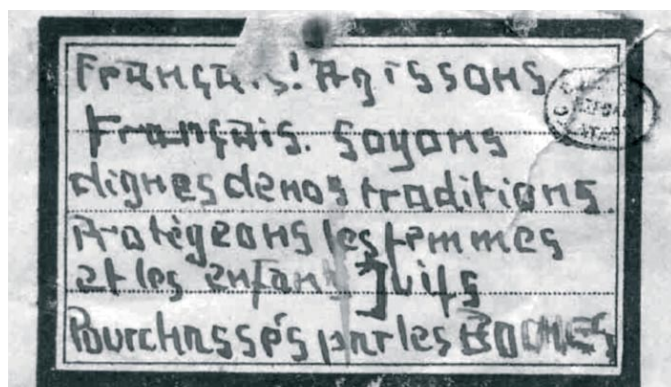 Français! Agissons
Français. Soyons
dignes de nos traditions.
Protègeons les femmes
et les enfants Juifs
Pourchassés par les BOCHES